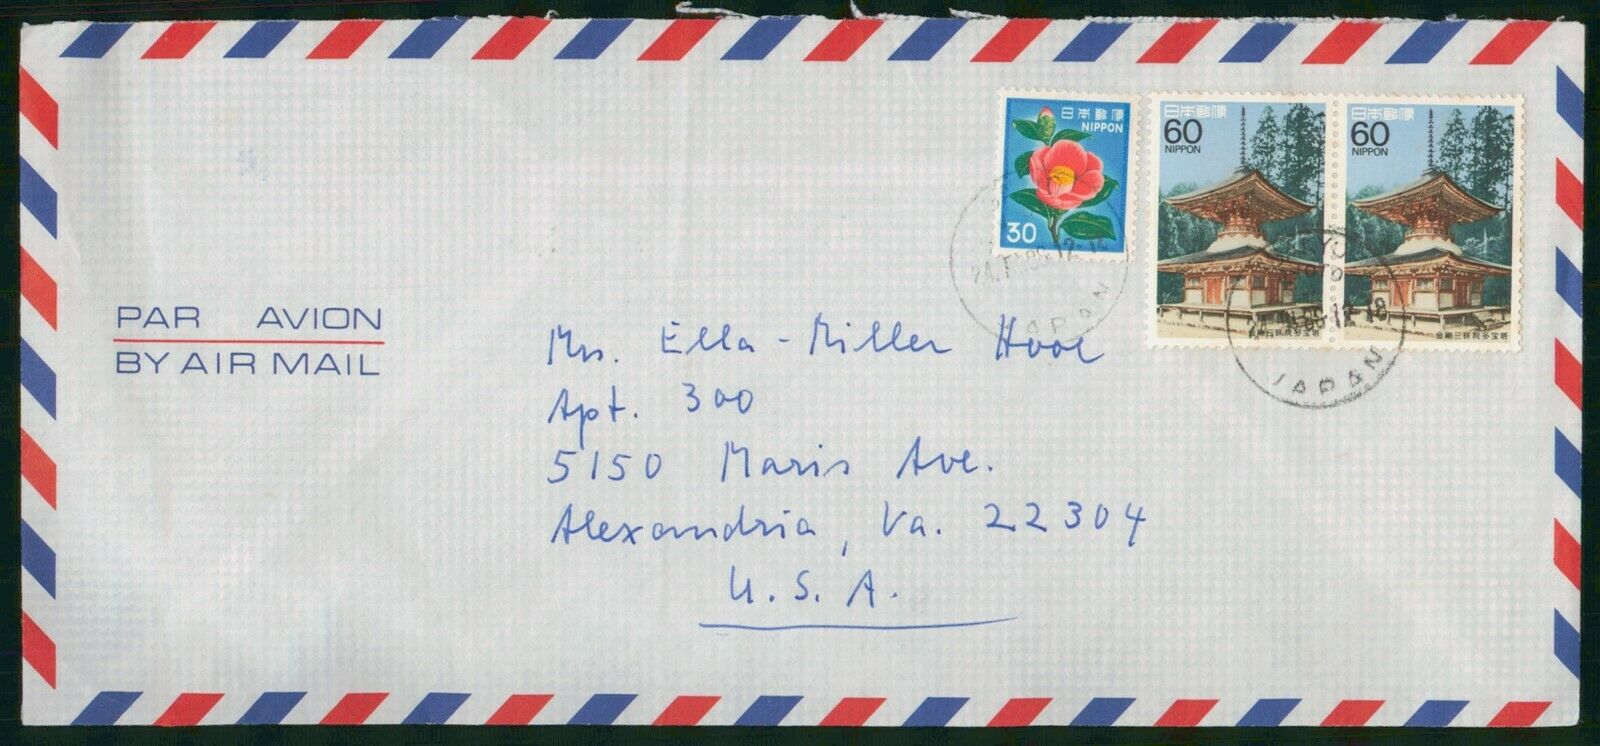 日本郵便
NIPPON
30
日本郵便
60
NIPPON
日本郵便
60
NIPPON
金剛三昧院多宝塔
金剛三昧院多宝塔
JAPAN
JAPAN
PAR AVION
BY AIR MAIL
Mrs. Ella-Miller Hool
Apt. 300
5150 Maris Ave.
Alexandria, Va. 22304
U.S.A.